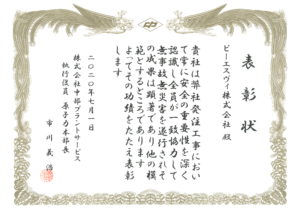 表彰状
ピーエスヴィ株式会社 殿
貴社は弊社発注工事におい
て常に安全の重要性を深く
認識し全員が一致協力して
無事故無災害を遂行されそ
の成果は顕著であり他の模
範とするところであります
よってその功績をたたえ表彰
します
二〇二〇年七月一日
株式会社中部プラントサービス
執行役員 原子力本部長
市川義浩